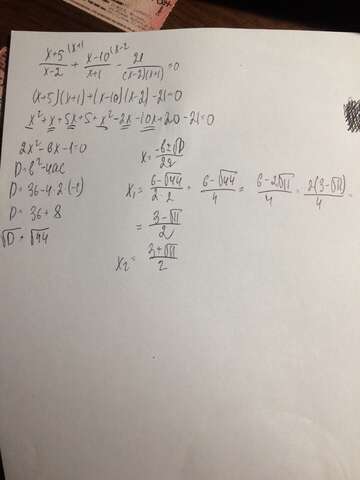 x+5 (x+1 / x-2 + x-10 (x-2 / x+1 - 21 / (x-2)(x+1) = 0
(x+5)(x+1)+(x-10)(x-2)-21=0
x²+x+5x+5+x²-2x-10x+20-21=0
2x²-6x-1=0
D=b²-4ac
D=36-4·2·(-1)
D=36+8
√D=√44
x=-b±√D / 2a
x₁=6-√44 / 2·2 = 6-√44 / 4 = 6-2√11 / 4 = 2(3-√11) / 4 =
=3-√11 / 2
x₂=3+√11 / 2